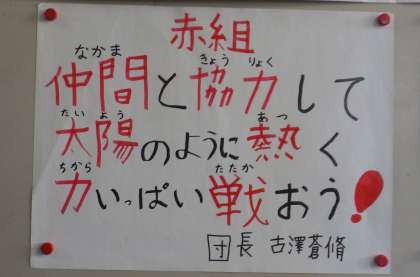 赤組
なかま きょう りょく
仲間と協力して
たい よう あつ
太陽のように熱く
ちから たたか
力いっぱい戦おう!
団長 古澤蒼脩